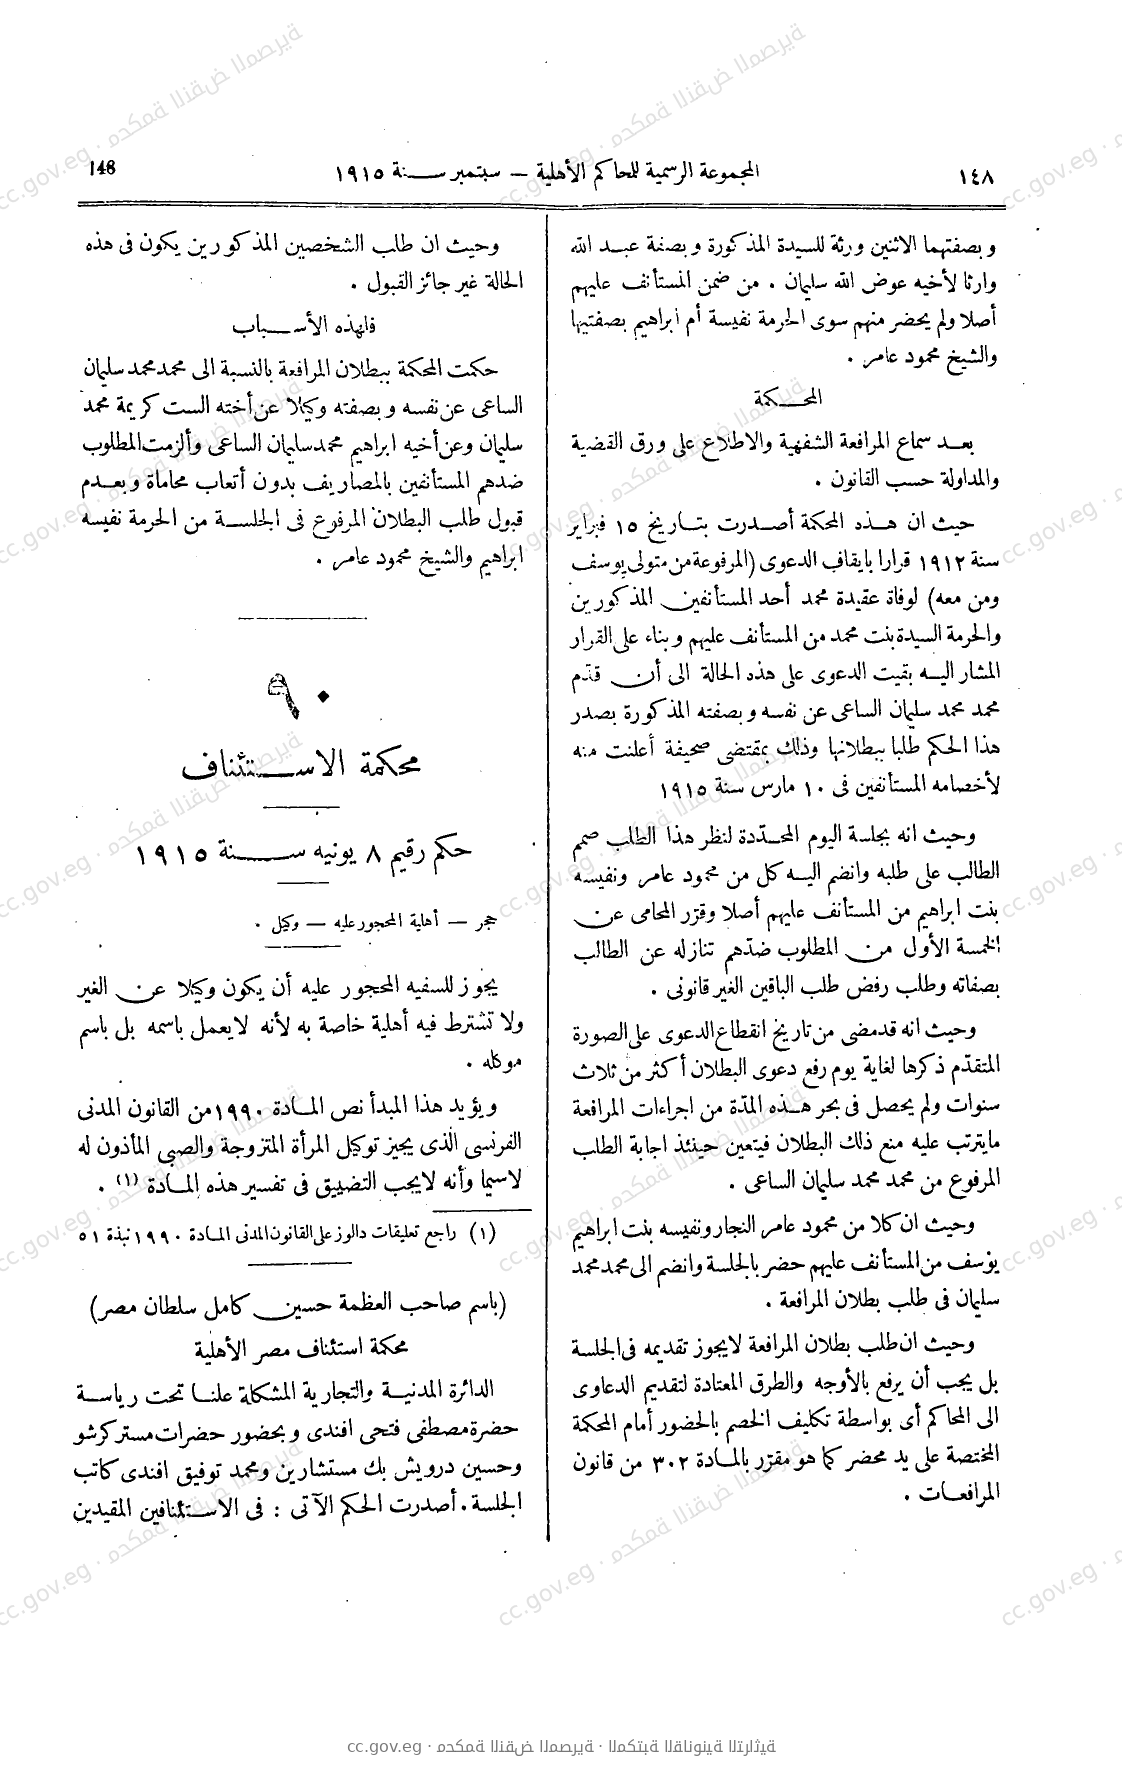 ١٤٨
المجموعة الرسمية للمحاكم الأهلية — سبتمبر سنة ١٩١٥
148
وبصفتهما الاثنين ورثة للسيدة المذكورة وبصفة عبد الله
وارثا لأخيه عوض الله سليمان . من ضمن المستأنف عليهم
أصلا ولم يحضر منهم سوى الحرمة نفيسة أم ابراهيم بصفتيها
والشيخ محمود عامر .
المحكمة
بعد سماع المرافعة الشفهية والاطلاع على ورق القضية
والمداولة حسب القانون .
حيث ان هذه المحكمة أصدرت بتاريخ ١٥ فبراير
سنة ١٩١٢ قرارا بايقاف الدعوى (المرفوعة من متولى يوسف
ومن معه) لوفاة عقيدة محمد أحد المستأنفين المذكورين
والحرمة السيدة بنت محمد من المستأنف عليهم وبناء على القرار
المشار اليه بقيت الدعوى على هذه الحالة الى أن قدّم
محمد محمد سليمان الساعى عن نفسه وبصفته المذكورة بصدر
هذا الحكم طلبا ببطلانها وذلك بمقتضى صحيفة أعلنت منه
لأخصامه المستأنفين فى ١٠ مارس سنة ١٩١٥
وحيث انه بجلسة اليوم المحدّدة لنظر هذا الطلب صمم
الطالب على طلبه وانضم اليه كل من محمود عامر ونفيسه
بنت ابراهيم من المستأنف عليهم أصلا وقرّر المحامى عن
الخمسة الأول من المطلوب ضدّهم تنازله عن الطالب
بصفاته وطلب رفض طلب الباقين الغير قانونى .
وحيث انه قد مضى من تاريخ انقطاع الدعوى على الصورة
المتقدّم ذكرها لغاية يوم رفع دعوى البطلان أكثر من ثلاث
سنوات ولم يحصل فى بحر هذه المدّة من اجراءات المرافعة
مايترتب عليه منع ذلك البطلان فيتعين حينئذ اجابة الطلب
المرفوع من محمد محمد سليمان الساعى .
وحيث ان كلا من محمود عامر النجار ونفيسه بنت ابراهيم
يوسف من المستأنف عليهم حضر بالجلسة وانضم الى محمد محمد
سليمان فى طلب بطلان المرافعة .
وحيث ان طلب بطلان المرافعة لايجوز تقديمه فى الجلسة
بل يجب أن يرفع بالأوجه والطرق المعتادة لتقديم الدعاوى
الى المحاكم أى بواسطة تكليف الخصم بالحضور أمام المحكمة
المختصة على يد محضر كما هو مقرّر بالمادة ٣٠٢ من قانون
المرافعات .
وحيث ان طلب الشخصين المذكورين يكون فى هذه
الحالة غير جائز القبول .
فلهذه الأسباب
حكمت المحكمة ببطلان المرافعة بالنسبة الى محمد محمد سليمان
الساعى عن نفسه وبصفته وكيلا عن أخته الست كريمة محمد
سليمان وعن أخيه ابراهيم محمد سليمان الساعى وألزمت المطلوب
ضدهم المستأنفين بالمصاريف بدون أتعاب محاماة وبعدم
قبول طلب البطلان المرفوع فى الجلسة من الحرمة نفيسه
ابراهيم والشيخ محمود عامر .
٩٠
محكمة الاستئناف
حكم رقيم ٨ يونيه سنة ١٩١٥
حجر — أهلية المحجور عليه — وكيل .
يجوز للسفيه المحجور عليه أن يكون وكيلا عن الغير
ولا تشترط فيه أهلية خاصة به لأنه لايعمل باسمه بل باسم
موكله .
ويؤيد هذا المبدأ نص المادة ١٩٩٠ من القانون المدنى
الفرنسى الذى يجيز توكيل المرأة المتزوجة والصبى المأذون له
لاسيما وأنه لايجب التضييق فى تفسير هذه المادة (١) .
(١) راجع تعليقات دالوز على القانون المدنى المادة ١٩٩٠ نبذة ٥١
(باسم صاحب العظمة حسين كامل سلطان مصر)
محكمة استئناف مصر الأهلية
الدائرة المدنية والتجارية المشكلة علنا تحت رياسة
حضرة مصطفى فتحى افندى وبحضور حضرات مستر كرشو
وحسين درويش بك مستشارين ومحمد توفيق افندى كاتب
الجلسة . أصدرت الحكم الآتى : فى الاستئنافين المقيدين
cc.gov.eg · محكمة النقض المصرية · المكتبة القانونية التراثية